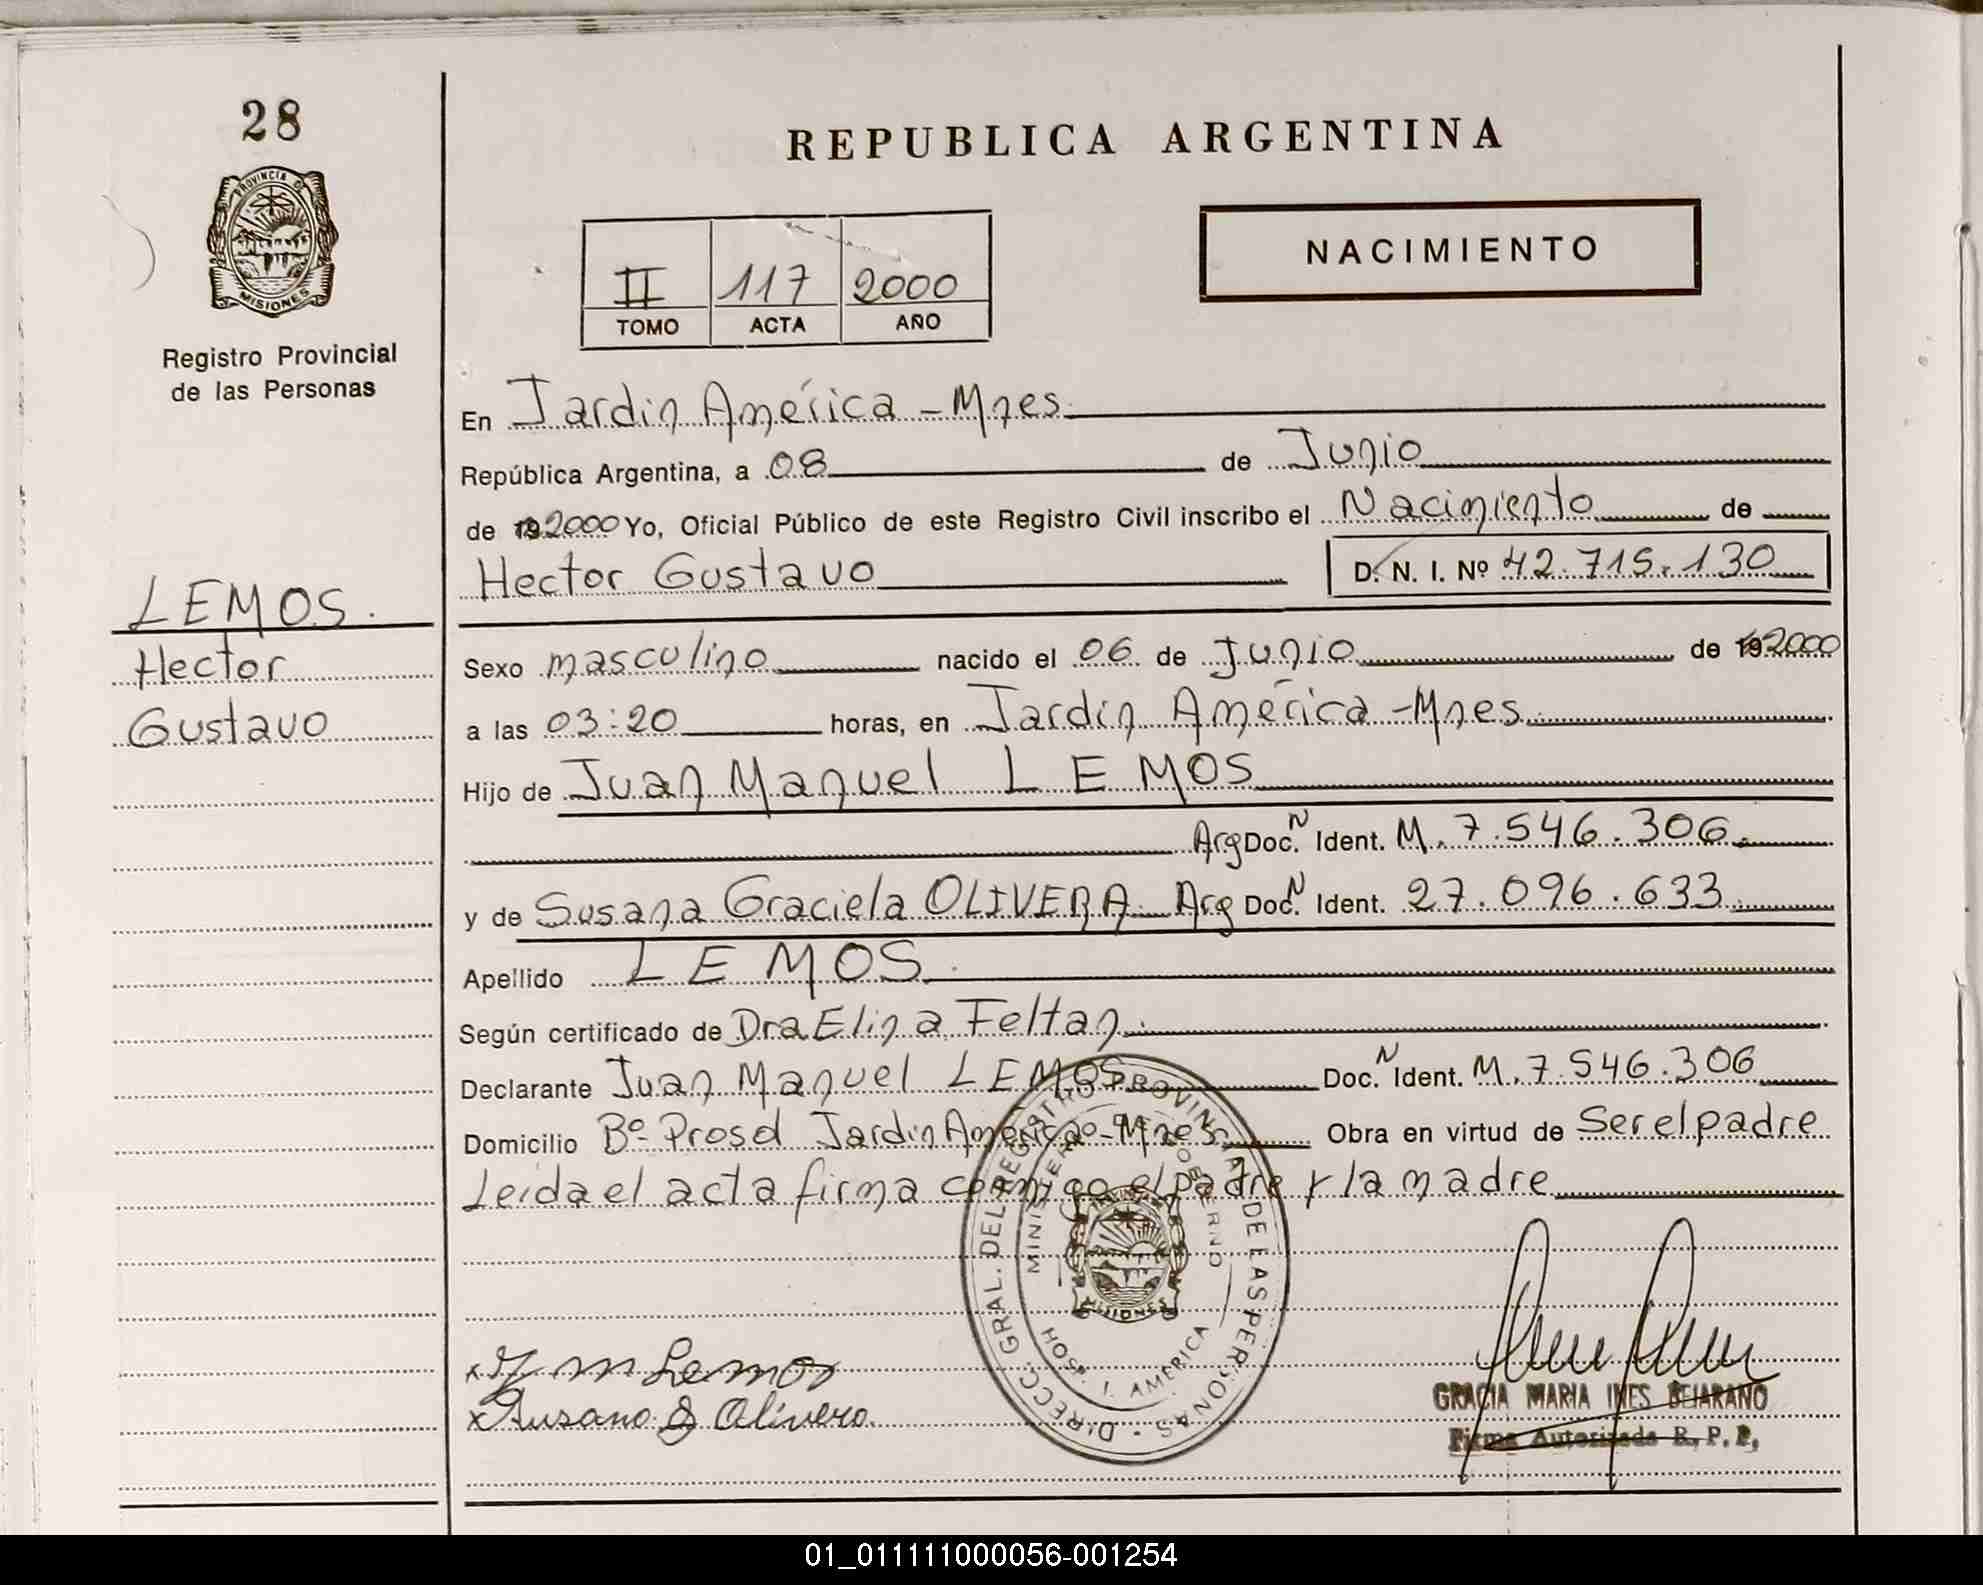 28
PROVINCIA DE
MISIONES
Registro Provincial
de las Personas
LEMOS.
Hector
Gustavo
REPUBLICA ARGENTINA
II 117 2000
TOMO ACTA AÑO
NACIMIENTO
En Jardin América - Mnes.
República Argentina, a 08 de Junio
de 192000 Yo, Oficial Público de este Registro Civil inscribo el Nacimiento de
Hector Gustavo D. N. I. Nº 42.715.130
Sexo masculino nacido el 06 de Junio de 192000
a las 03:20 horas, en Jardin América - Mnes.
Hijo de Juan Manuel LEMOS
Arg Doc. N Ident. M. 7.546.306.
y de Susana Graciela OLIVERA Arg Doc. N Ident. 27.096.633
Apellido LEMOS.
Según certificado de Dra Elina Feltan.
Declarante Juan Manuel LEMOS Doc. N Ident. M. 7.546.306
Domicilio Bº Prosol Jardin América - Mnes Obra en virtud de Ser el padre
Leida el acta firma conmigo el padre y la madre
DIRECC. GRAL. DEL REGISTRO PROVINCIAL DE LAS PERSONAS
MINISTERIO DE GOBIERNO
MISIONES
HOSP. J. AMERICA
x J M Lemos
x Susana G Olivera.
GRACIA MARIA INES BEJARANO
Firma Autorizada R. P. P.
01_011111000056-001254